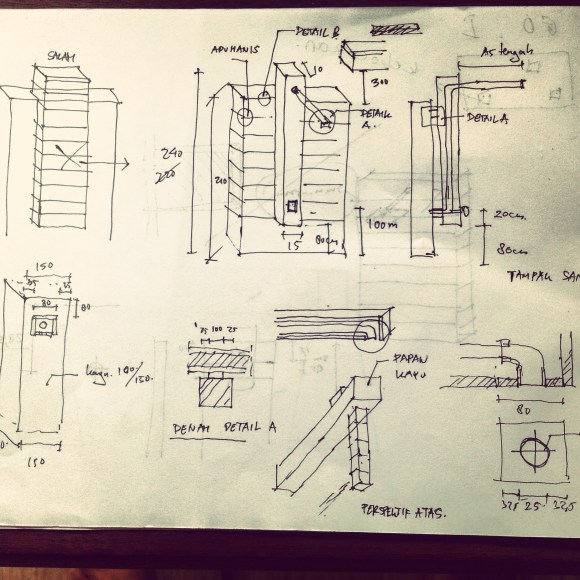 SALAH
ADUKANIS
DETAIL B
10
300
DETAIL
A.
240
220
210
15
80cm
100m
As tengah
DETAIL A
20cm.
80cm
TAMPAK SAM
150
35
35
80
80
kayu. 100/
150.
150
25 100 25
DENAH DETAIL A
PAPAN
KAYU
PERSPEKTIF ATAS.
80
32,5 25 32,5